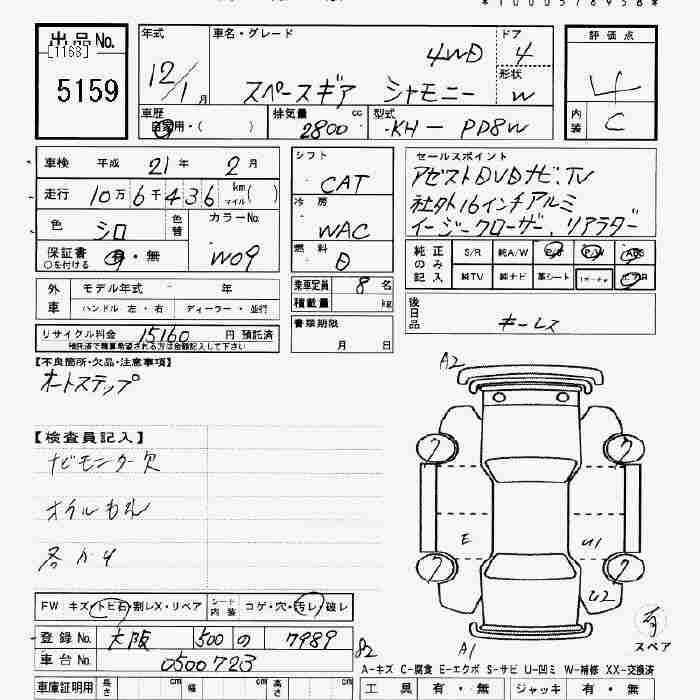 *1000578958*
出品No.
[1168]
5159
年式
12/1月
車名・グレード
4WD
スペースギア シャモニー
ドア
4
形状
W
評価点
4
内装
C
車歴
自家用・( )
排気量
2800 cc
型式
-KH- PD8W
車検 平成 21年 2月
走行 10万6千436 km マイル( )
色
シロ
色替
カラーNo.
W09
保証書
○を付ける
有・無
シフト
CAT
冷房
WAC
燃料
D
セールスポイント
アゼストDVDナビ.TV
社外16インチアルミ
イージークローザー.リアラダー
純正のみ記入
S/R 純A/W P/S P/W ABS
純TV 純ナビ 革シート
外車
モデル年式 - 年
ハンドル 左・右 ディーラー・並行
乗車定員 8名
積載量 kg
書類期限
月 日
後日品
キーレス
リサイクル料金 15160 円 預託済
預託済で精算希望される方は金額記入して下さい
【不良箇所・欠品・注意事項】
オートステップ
【検査員記入】
ナビモニター欠
オイルもれ
各カサ
FW キズ・トビ石・割レX・リペア
シート内装 コゲ・穴・汚レ・破レ
登録No. 大阪 500 の 7989
車台No. 0500723
82
車庫証明用 長さ cm 幅 cm 高さ cm
A2
E
U1
U2
A1
有
スペア
A-キズ C-腐食 E-エクボ S-サビ U-凹ミ W-補修 XX-交換済
工具 有・無 ジャッキ 有・無